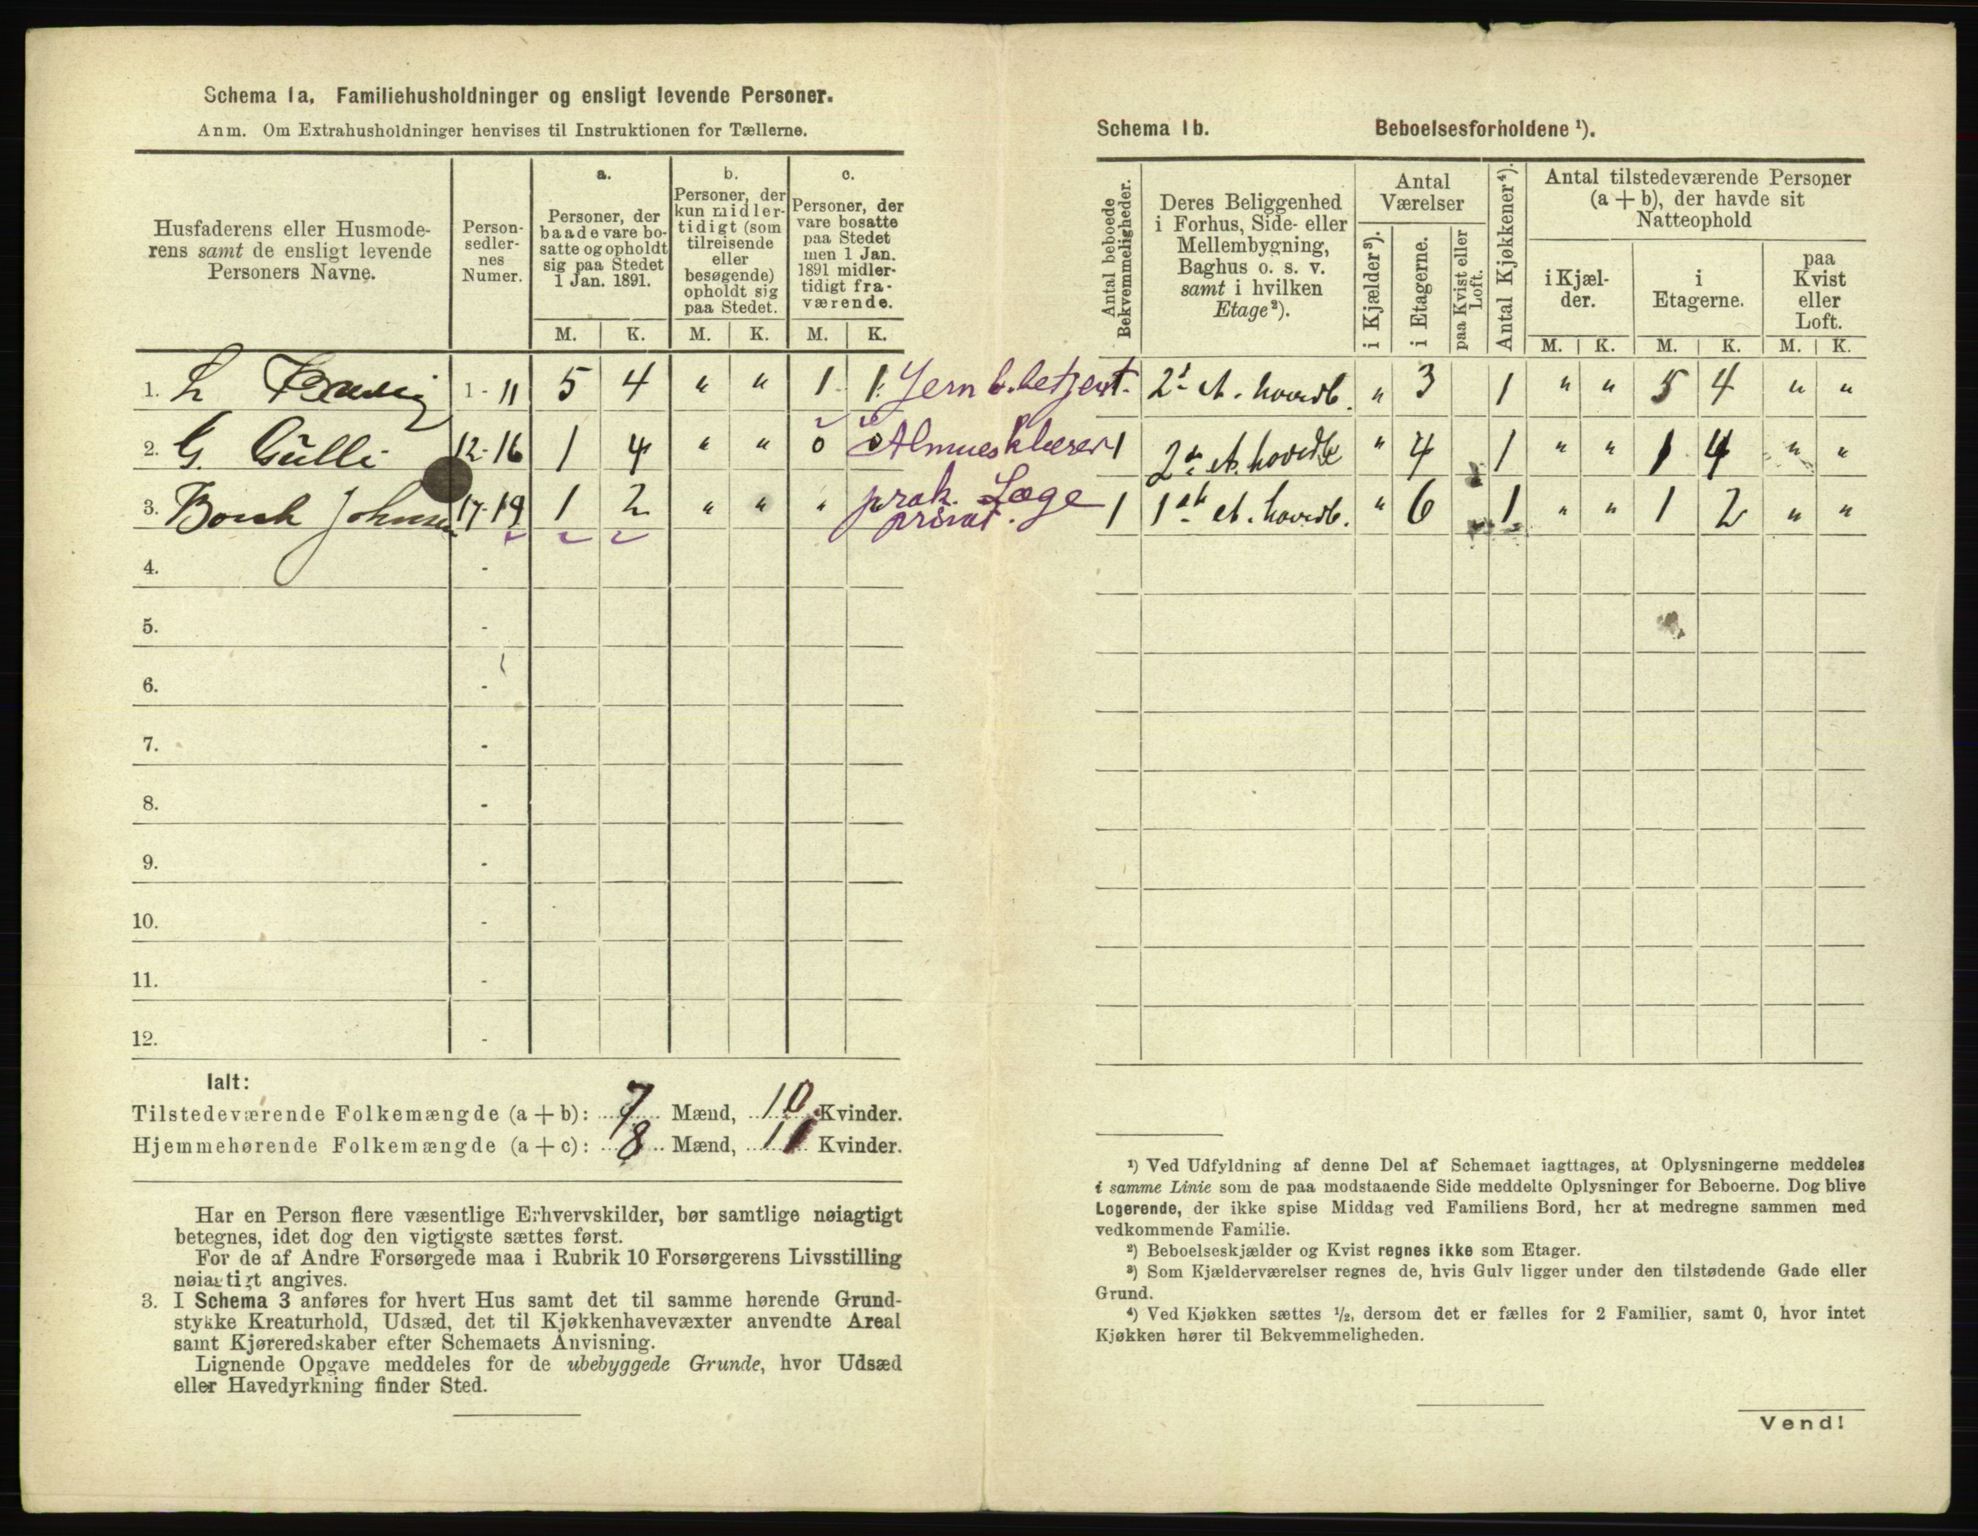 Schema 1a. Familiehusholdninger og ensligt levende Personer.
Anm. Om Extrahusholdninger henvises til Instruktionen for Tællerne.
Husfaderens eller Husmoderens samt de ensligt levende Personers Navne.
Personsedlernes Numer.
a.
Personer, der baade vare bosatte og opholdt sig paa Stedet 1 Jan. 1891.
b.
Personer, der kun midlertidigt (som tilreisende eller besøgende) opholdt sig paa Stedet.
c.
Personer, der vare bosatte paa Stedet men 1 Jan. 1891 midlertidigt fraværende.
M. K. M. K. M. K.
1. L 1 - 11 5 4 " " 1 1.
2. G. Gülli 12-16 1 4 " " 0 0 Almues
3. Borck Johnsen 17-19 1 2 " " " prak. Læge
privat.
4. -
5. -
6. -
7. -
8. -
9. -
10. -
11. -
12. -
Ialt:
Tilstedeværende Folkemængde (a + b): 7 Mænd, 10 Kvinder.
Hjemmehørende Folkemængde (a + c): 8 Mænd, 11 Kvinder.
Har en Person flere væsentlige Erhvervskilder, bør samtlige nøiagtigt
betegnes, idet dog den vigtigste sættes først.
For de af Andre Forsørgede maa i Rubrik 10 Forsørgerens Livsstilling
nøiagtigt angives.
3. I Schema 3 anføres for hvert Hus samt det til samme hørende Grund-
stykke Kreaturhold, Udsæd, det til Kjøkkenhavevæxter anvendte Areal
samt Kjøreredskaber efter Schemaets Anvisning.
Lignende Opgave meddeles for de ubebyggede Grunde, hvor Udsæd
eller Havedyrkning finder Sted.
Schema 1b. Beboelsesforholdene ¹).
Antal beboede Bekvemmeligheder.
Deres Beliggenhed i Forhus, Side- eller Mellembygning, Baghus o. s. v. samt i hvilken Etage²).
Antal Værelser
i Kjælder³).
i Etagerne.
paa Kvist eller Loft.
Antal Kjøkkener⁴).
Antal tilstedeværende Personer (a + b), der havde sit Natteophold
i Kjælder.
i Etagerne.
paa Kvist eller Loft.
M. K. M. K. M. K.
2d et. hovedb. " 3 1 " " 5 4 " "
1 2de et. hovedb " 4 1 " " 1 4 " "
1 1ste et. hovedb. " 6 1 " " 1 2 " "
¹) Ved Udfyldning af denne Del af Schemaet iagttages, at Oplysningerne meddeles
i samme Linie som de paa modstaaende Side meddelte Oplysninger for Beboerne. Dog blive
Logerende, der ikke spise Middag ved Familiens Bord, her at medregne sammen med
vedkommende Familie.
²) Beboelseskjælder og Kvist regnes ikke som Etager.
³) Som Kjælderværelser regnes de, hvis Gulv ligger under den tilstødende Gade eller
Grund.
⁴) Ved Kjøkken sættes ½, dersom det er fælles for 2 Familier, samt 0, hvor intet
Kjøkken hører til Bekvemmeligheden.
Vend!